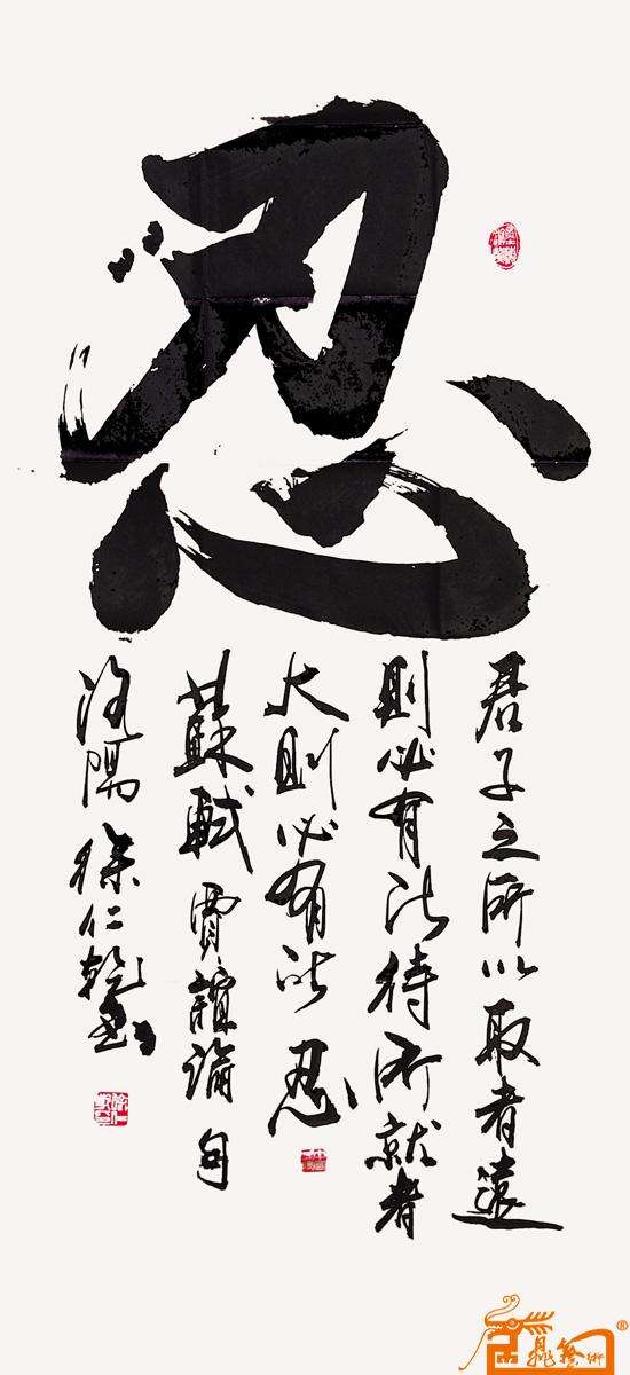 忍
君子之所以取者遠
則必有所待所就者
大則必有所忍
蘇軾賈誼論句
洛陽徐仁乾書